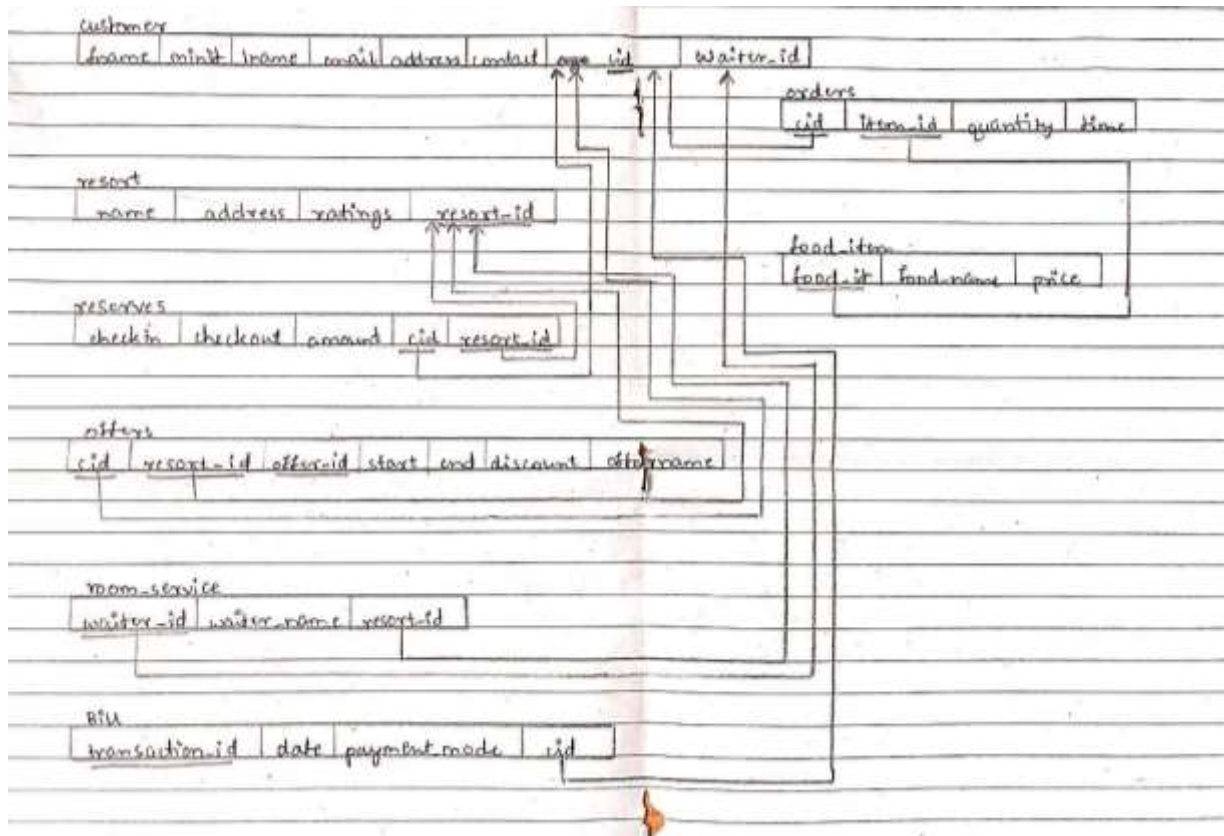 customer
fname minit lname email address contact cid waiter_id
orders
cid item_id quantity time
resort
name address ratings resort_id
food_item
food_it food_name price
reserves
checkin checkout amound cid resort_id
offers
cid resort_id offer_id start end discount offername
room_service
waiter_id waiter_name resort_id
Bill
transaction_id date payment_mode cid